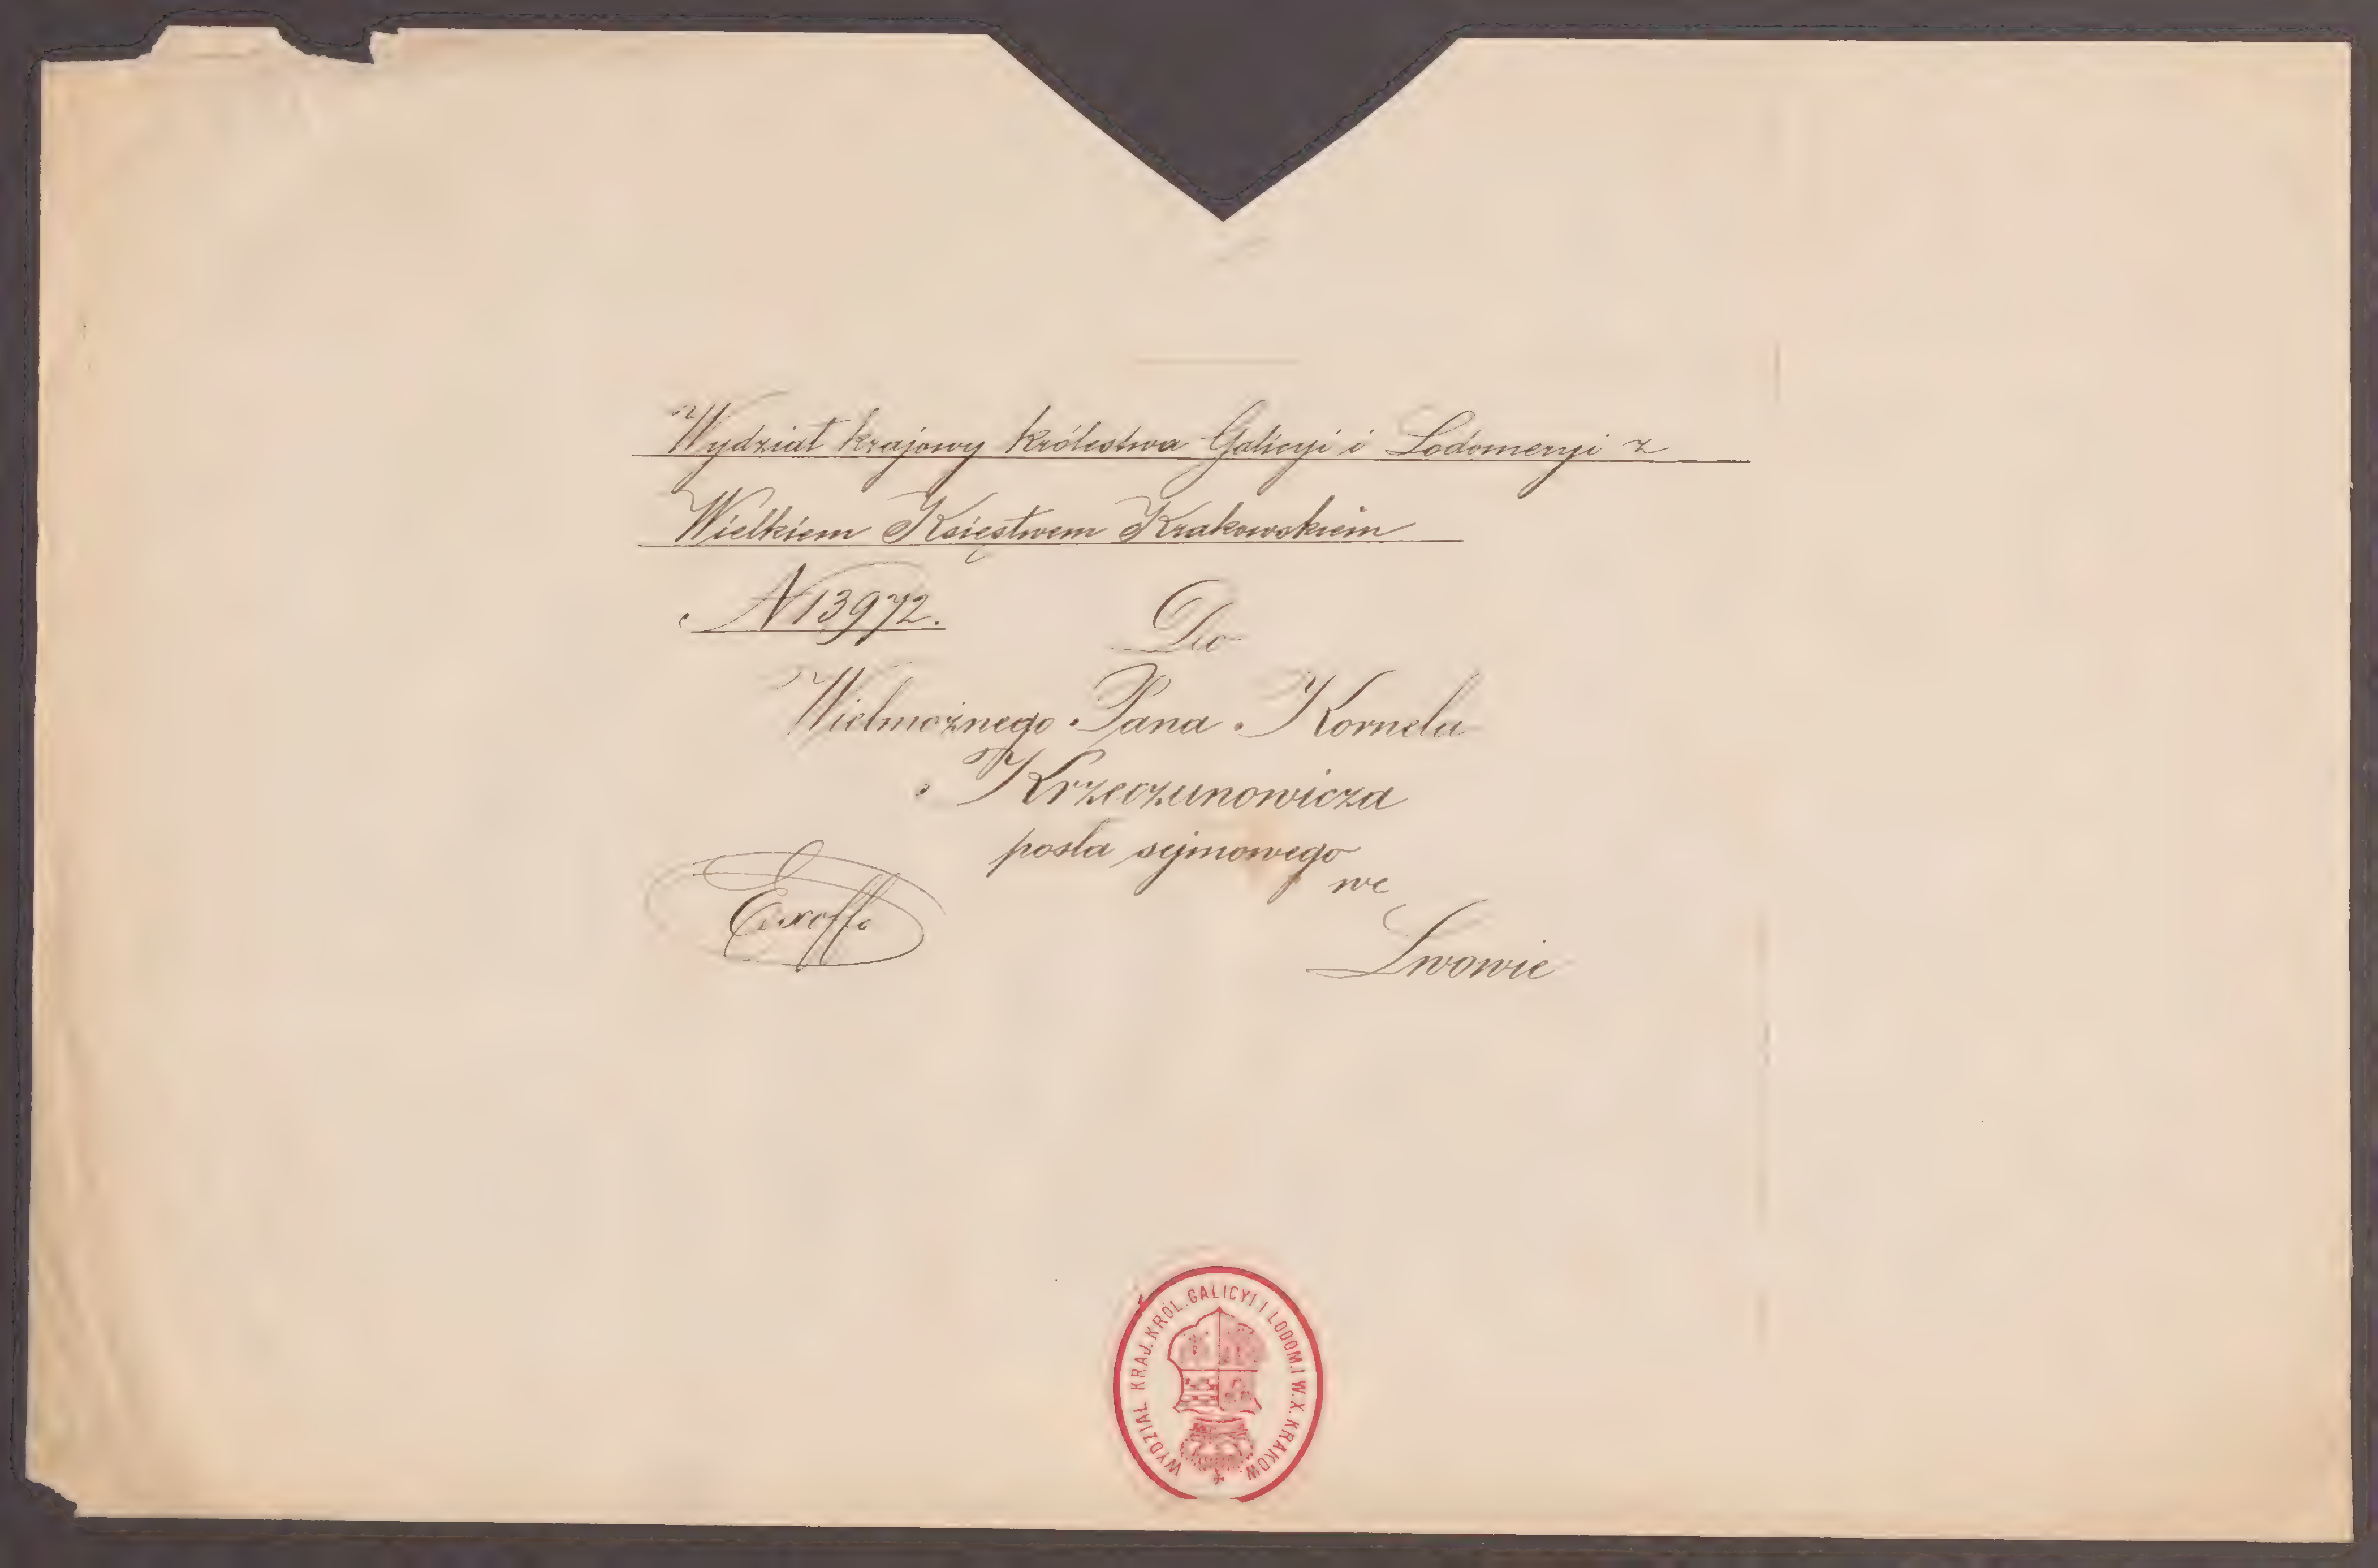 Wydział krajowy Królestwa Galicyi i Lodomeryi z
Wielkiem Księstwem Krakowskiem
N 13972.
Do
Wielmożnego Pana Kornela
Krzeczunowicza
posła sejmowego
we
Exoffo
Lwowie
WYDZIAŁ KRAJ. KRÓL. GALICYI I LODOM. I W. X. KRAKOW.